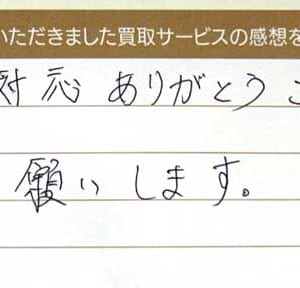 いただきました買取サービスの感想を
対応ありがとうご
願いします。